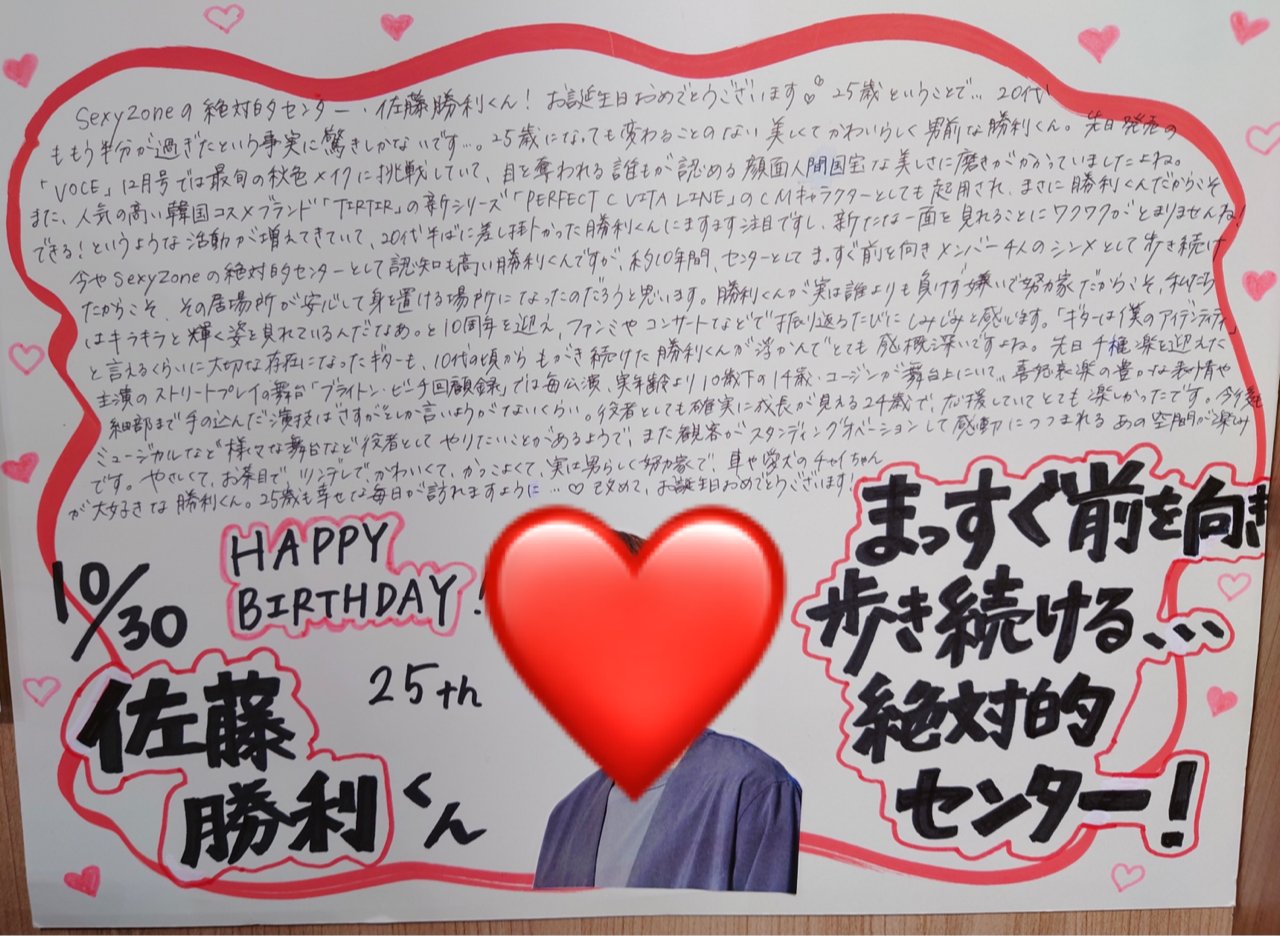 SexyZoneの絶対的センター・佐藤勝利くん！ お誕生日おめでとうございます♡ 25歳ということで… 20代
ももう半分が過ぎたという事実に驚きしかないです…。25歳になっても変わることのない美しくてかわいらしく男前な勝利くん。先日発売の
「VOCE」12月号では最旬の秋色メイクに挑戦していて、目を奪われる誰もが認める顔面人間国宝な美しさに磨きがかかっていましたよね。
また、人気の高い韓国コスメブランド「TIRTIR」の新シリーズ「PERFECT C VITA LINE」のCMキャラクターとしても起用され、まさに勝利くんだからこそ
できる！というような活動が増えてきていて、20代半ばに差し掛かった勝利くんにますます注目ですし、新たな一面を見れることにワクワクがとまりませんね！
今やSexyZoneの絶対的センターとして認知も高い勝利くんですが、約10年間、センターとしてまっすぐ前を向きメンバー4人のシンメとして歩き続け
たからこそ、その居場所が安心して身を置ける場所になったのだろうと思います。勝利くんが実は誰よりも負けず嫌いで努力家だからこそ、私たち
はキラキラと輝く姿を見れているんだなあ。と10周年を迎え、ファンミやコンサートなどで振り返るたびにしみじみと感います。「ギターは僕のアイデンティティ」
と言えるくらいに大切な存在になったギターも、10代の頃からもがき続けた勝利くんが浮かんでとても感慨深いですよね。先日千穐楽を迎えた
主演のストリートプレイの舞台「ブライトン・ビーチ回顧録」では毎公演、実年齢より10歳下の14歳・ユージンが舞台上にいて… 喜怒哀楽の豊かな表情や
細部まで手の込んだ演技はさすがとしか言いようがないくらい。役者としても確実に成長が見える24歳で、応援していてとても楽しかったです。今後も
ミュージカルなど様々な舞台など役者としてやりたいことがあるようで、また観客がスタンディングオベーションして感動につつまれるあの空間が楽しみ
です。やさしくて、お茶目で、ツンデレでかわいくて、かっこよくて、実は男らしく努力家で、車や愛犬のチャイちゃん
が大好きな勝利くん。25歳も幸せな毎日が訪れますように…♡ 改めて、お誕生日おめでとうございます！
10/30
HAPPY
BIRTHDAY！
25th
佐藤
勝利くん
まっすぐ前を向き
歩き続ける…
絶対的
センター！